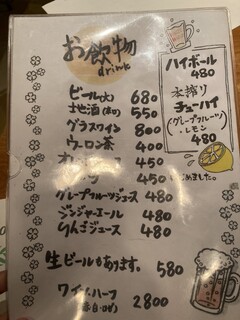 お飲物
drink
ビール(大) 680
地酒 550
グラスワイン 800
ウーロン茶 400
450
450
グレープフルーツジュース 480
ジンジャーエール 480
りんごジュース 480
生ビールもあります。 580
ワインハーフ 2800
ハイボール
480
本搾り
チューハイ
(グレープフルーツ)
・レモン
480
じめました。